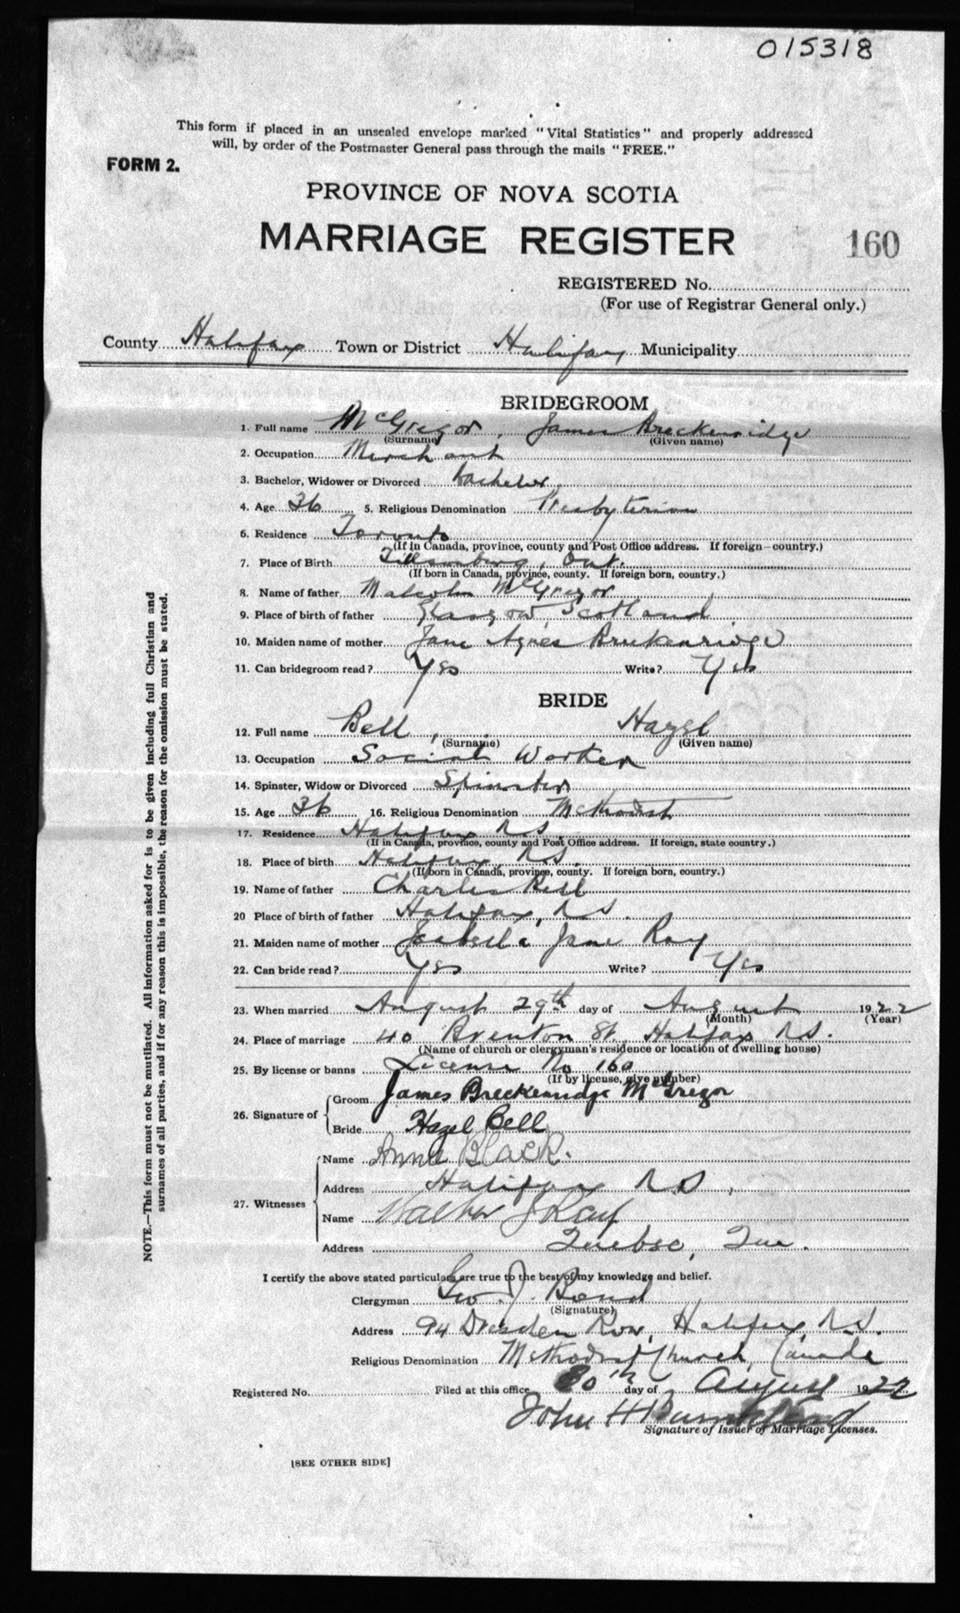 015318
This form if placed in an unsealed envelope marked "Vital Statistics" and properly addressed
will, by order of the Postmaster General pass through the mails "FREE."
FORM 2.
PROVINCE OF NOVA SCOTIA
MARRIAGE REGISTER 160
REGISTERED No.
(For use of Registrar General only.)
County Halifax Town or District Halifax Municipality
BRIDEGROOM
1. Full name McGregor, James Breckenridge
(Surname) (Given name)
2. Occupation Merchant
3. Bachelor, Widower or Divorced Bachelor
4. Age 36 5. Religious Denomination Presbyterian
6. Residence Toronto
(If in Canada, province, county and Post Office address. If foreign—country.)
7. Place of Birth Tillsonburg, Ont.
(If born in Canada, province, county. If foreign born, country.)
8. Name of father Malcolm McGregor
9. Place of birth of father Glasgow Scotland
10. Maiden name of mother Jane Agnes Breckenridge
11. Can bridegroom read? Yes Write? Yes
BRIDE
12. Full name Bell, Hazel
(Surname) (Given name)
13. Occupation Social Worker
14. Spinster, Widow or Divorced Spinster
15. Age 36 16. Religious Denomination Methodist
17. Residence Halifax N.S.
(If in Canada, province, county and Post Office address. If foreign, state country.)
18. Place of birth Halifax, N.S.
(If born in Canada, province, county. If foreign born, country.)
19. Name of father Charles Bell
20 Place of birth of father Halifax, N.S.
21. Maiden name of mother Isabella Jane Ray
22. Can bride read? Yes Write? Yes
23. When married August 29th day of August 1922
(Month) (Year)
24. Place of marriage 40 Brenton St. Halifax N.S.
(Name of church or clergyman's residence or location of dwelling house)
25. By license or banns License No 160
(If by license, give number)
26. Signature of Groom James Breckenridge McGregor
Bride Hazel Bell
27. Witnesses Name Anna Black.
Address Halifax N.S.
Name Walter J Ray
Address Quebec, Que.
I certify the above stated particulars are true to the best of my knowledge and belief.
Clergyman Geo. J. Bond
(Signature)
Address 94 Dresden Row, Halifax, N.S.
Religious Denomination Methodist Church Canada
Registered No. Filed at this office 30th day of August 1922
John H
Signature of Issuer of Marriage Licenses.
[SEE OTHER SIDE]
NOTE.—This form must not be mutilated. All information asked for is to be given including full Christian and
surnames of all parties, and if for any reason this is impossible, the reason for the omission must be stated.